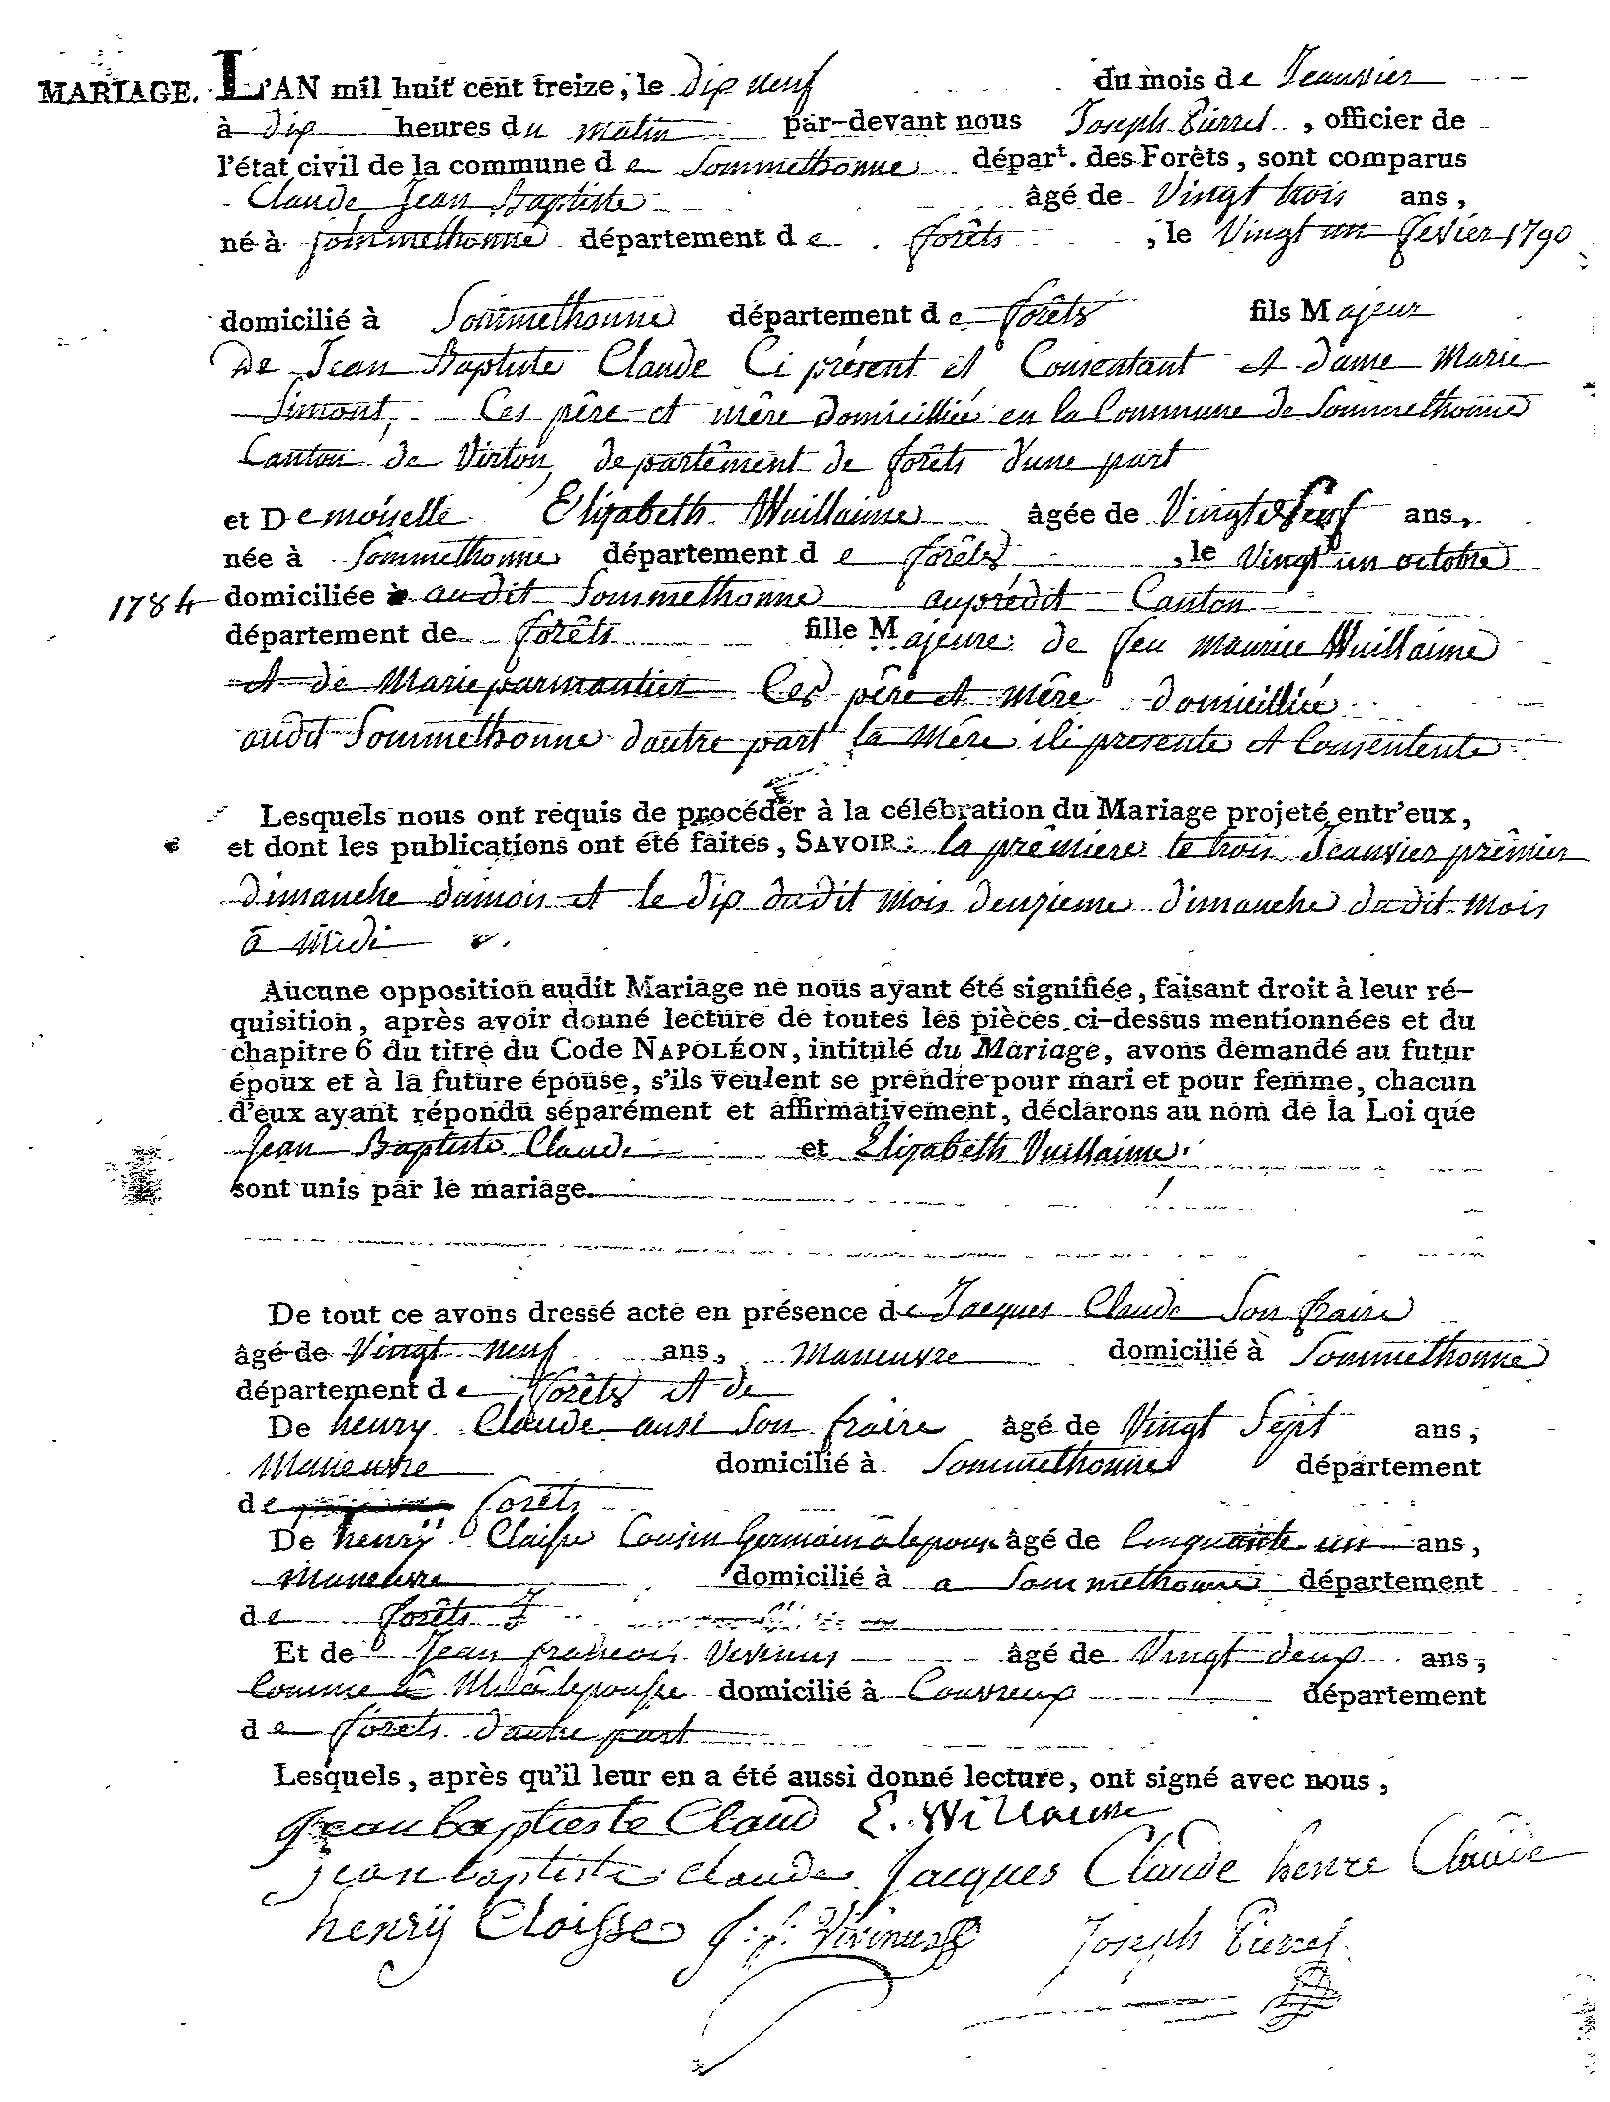 MARIAGE. L'AN mil huit cent treize, le dix neuf du mois de Jeanvier
à dix heures du matin par-devant nous Joseph Pierret, officier de
l'état civil de la commune de Sommethonne départ. des Forêts, sont comparus
Claude Jean Baptiste âgé de Vingt trois ans,
né à Sommethonne département de forêts, le Vingt un fevier 1790
domicilié à Sommethonne département de forêts fils Majeur
De Jean Baptiste Claude Ci présent et Consentant et dame Marie
Simont, Ces pêre et mêre domicilliée en la Commune de Sommethonne
Canton de Virton, departêment de forêts d'une part
et Demoiselle Elizabeth Wuillaime âgée de Vingt ans,
née à Sommethonne département de forêts, le Vingt un octobre
1784 domiciliée à audit Sommethonne auprédit Canton
département de forêts fille Majeure de feu Maurice Wuillaime
et de Marie parmantier Ces pêre et mêre domicilliée
audit Sommethonne dautre part la Mêre ili presente et Consentente
Lesquels nous ont requis de procéder à la célébration du Mariage projeté entr'eux,
et dont les publications ont été faites, SAVOIR: la prêmiere le trois Jeanvier prêmier
dimanche dumois et le dix dudit mois deuzieme dimanche dudit mois
a Midi
Aucune opposition audit Mariage ne nous ayant été signifiée, faisant droit à leur ré-
quisition, après avoir donné lecture de toutes les pièces ci-dessus mentionnées et du
chapitre 6 du titre du Code NAPOLÉON, intitulé du Mariage, avons demandé au futur
époux et à la future épouse, s'ils veulent se prendre pour mari et pour femme, chacun
d'eux ayant répondu séparément et affirmativement, déclarons au nom de la Loi que
Jean Baptiste Claude et Elizabeth Vuillaime
sont unis par le mariage.
De tout ce avons dressé acte en présence de Jacques Claude Son fraire
âgé de Vingt neuf ans, Maneuvre domicilié à Sommethonne
département de forêts et de
De henry Claude ausi Son fraire âgé de Vingt Sept ans,
Maneuvre domicilié à Sommethonne département
de forêts
De henrÿ Claisse Cousin Germain a lepoux âgé de Cinquante un ans,
Maneuvre domicilié à a Sommethonne département
de forêts
Et de Jean francois Vivinus âgé de Vingt deux ans,
lepousse domicilié à Couvreux département
de forêts dautre part
Lesquels, après qu'il leur en a été aussi donné lecture, ont signé avec nous,
Jean baptieste Claud E. Willaume
jean baptiste claude Jacques Claude henre Claude
henrÿ Cloisse J: f: Vivinus Joseph Pierret